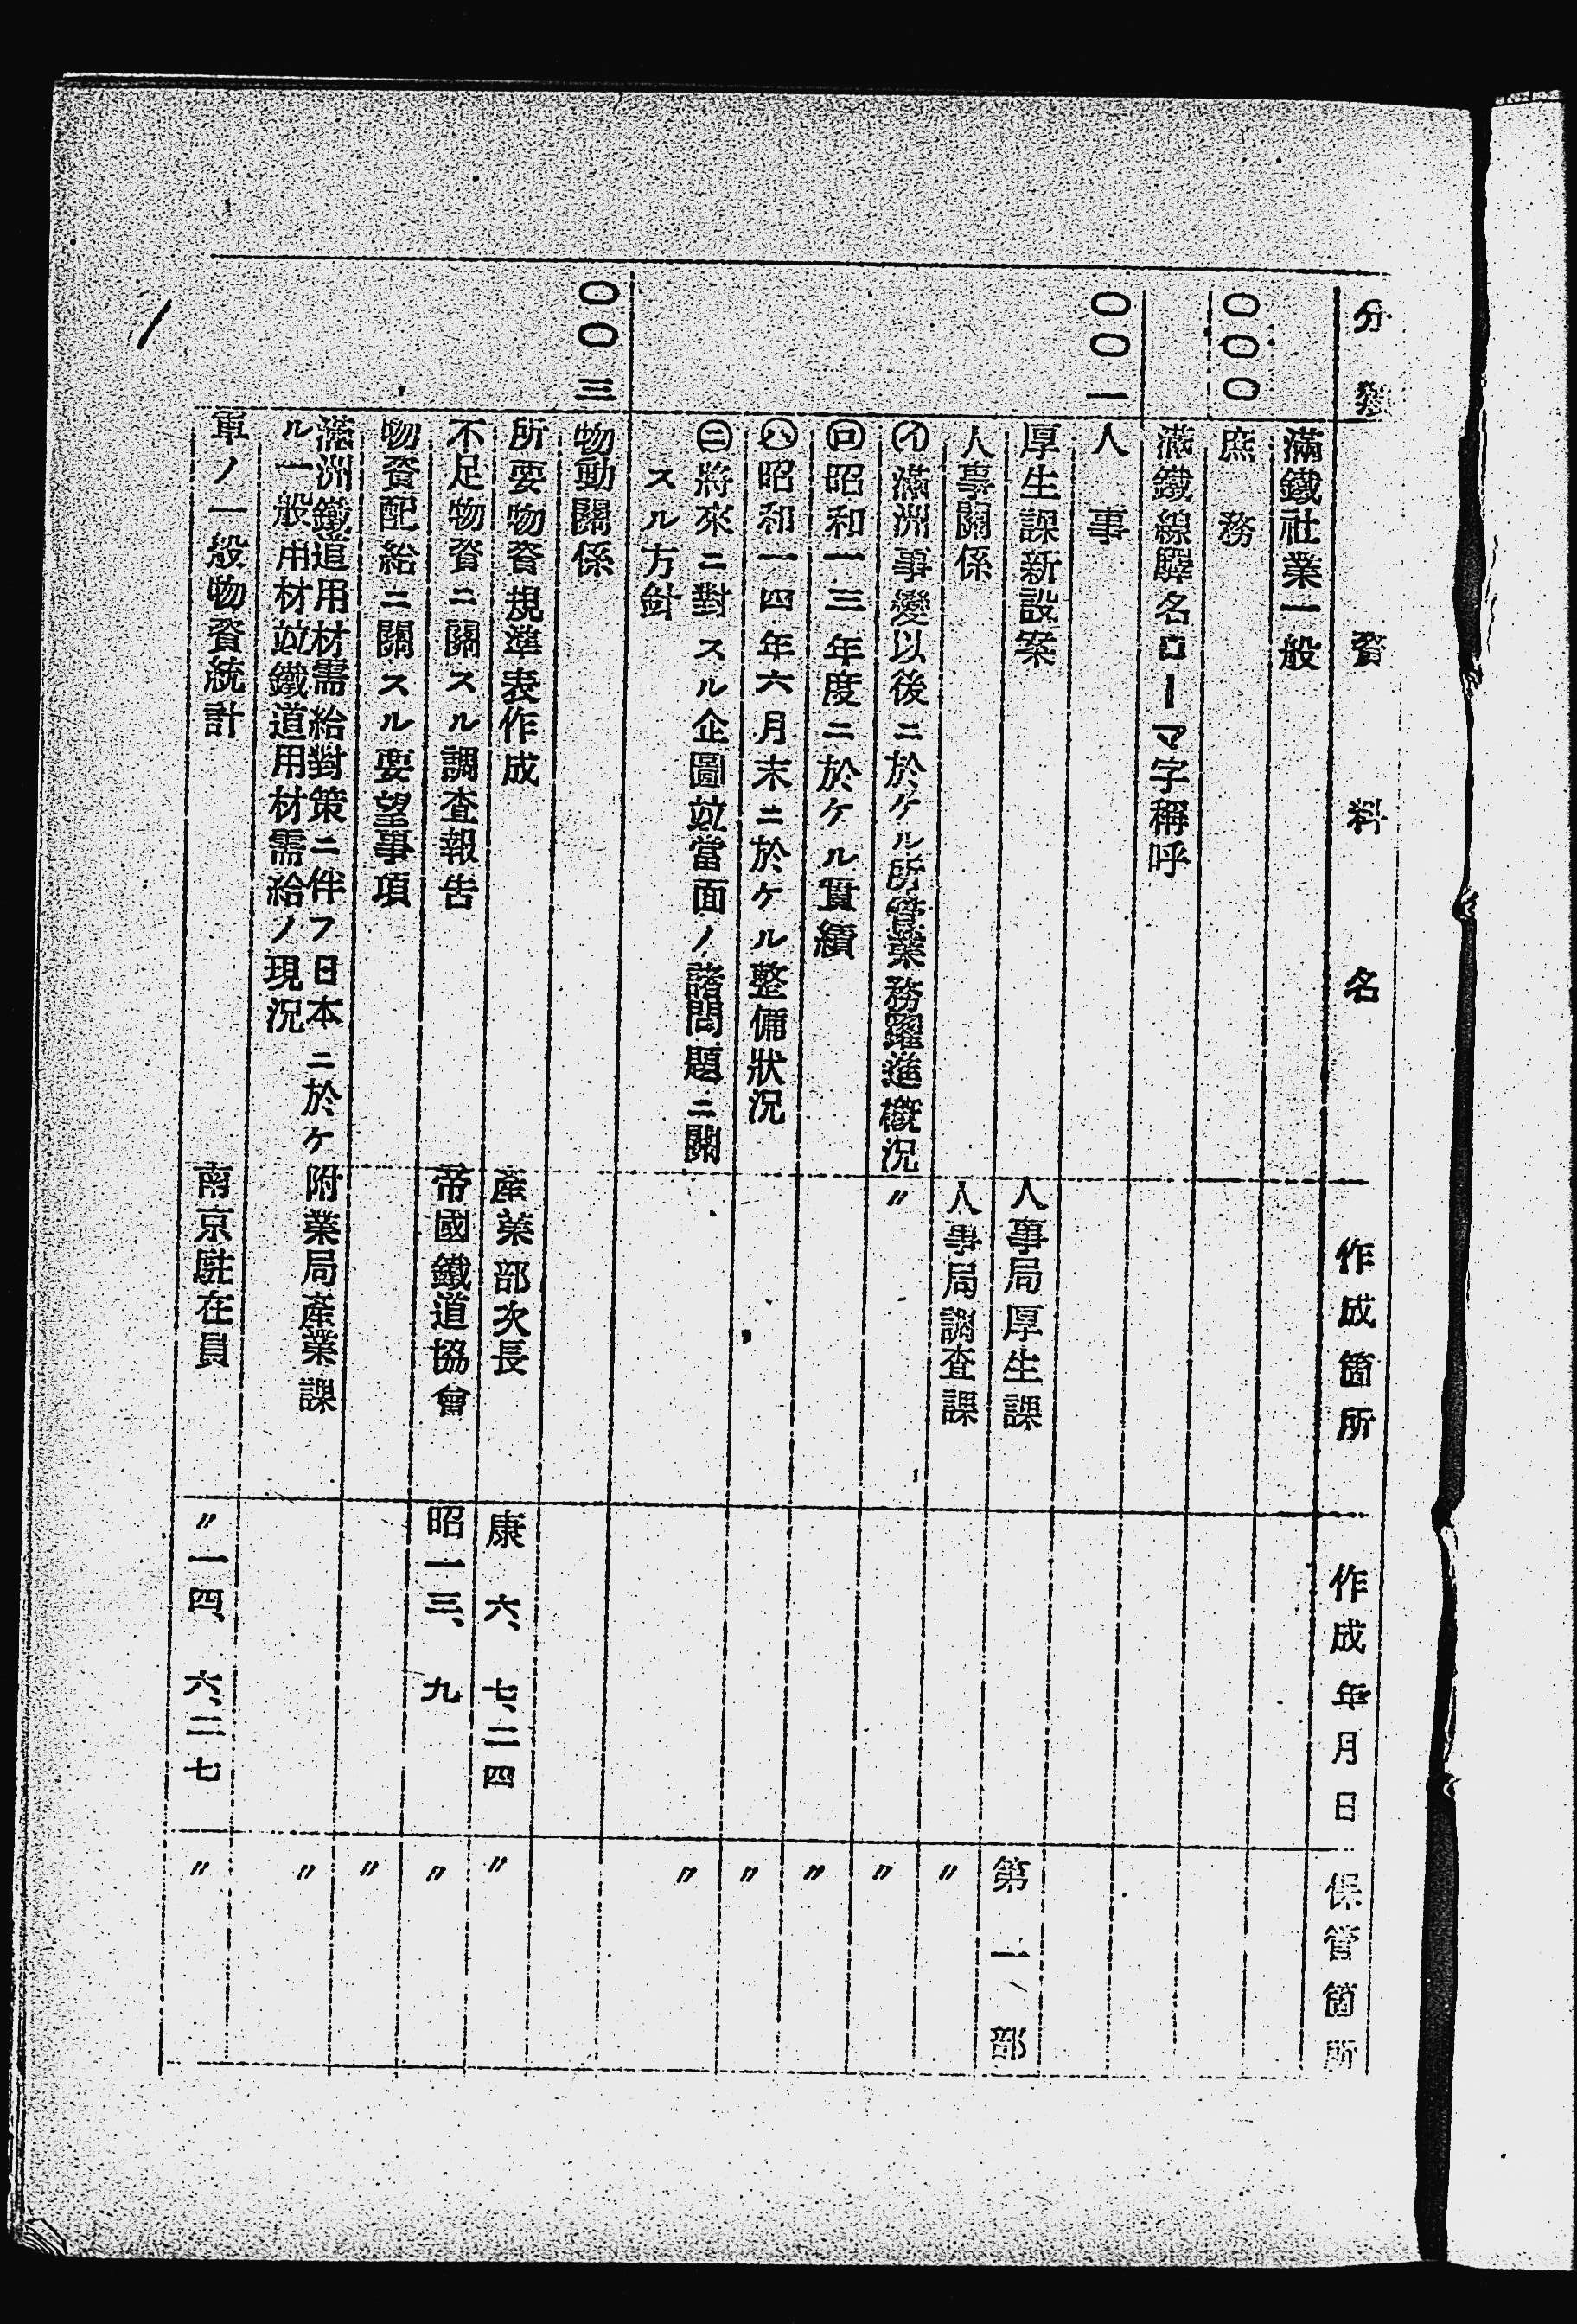 分類　資料名　作成箇所　作成年月日　保管箇所
滿鐵社業一般
〇〇〇　庶務
滿鐵線驛名ローマ字稱呼
〇〇一　人事
厚生課新設案　人事局厚生課　第一部
人事關係　人事局調査課　〃
㋑滿洲事變以後ニ於ケル所管業務躍進概況　〃　〃
㋺昭和一三年度ニ於ケル實績　〃
㋩昭和一四年六月末ニ於ケル整備狀況　〃
㋥將來ニ對スル企圖竝當面ノ諸問題ニ關
スル方針　〃
〇〇三　物動關係
所要物資規準表作成　產業部次長　康六、七、二四　〃
不足物資ニ關スル調査報告　帝國鐵道協會　昭一三、九　〃
物資配給ニ關スル要望事項　〃
滿洲鐵道用材需給對策ニ伴フ日本ニ於ケ
ル一般用材竝鐵道用材需給ノ現況　附業局產業課　〃
軍ノ一般物資統計　南京駐在員　〃一四、六、二七　〃